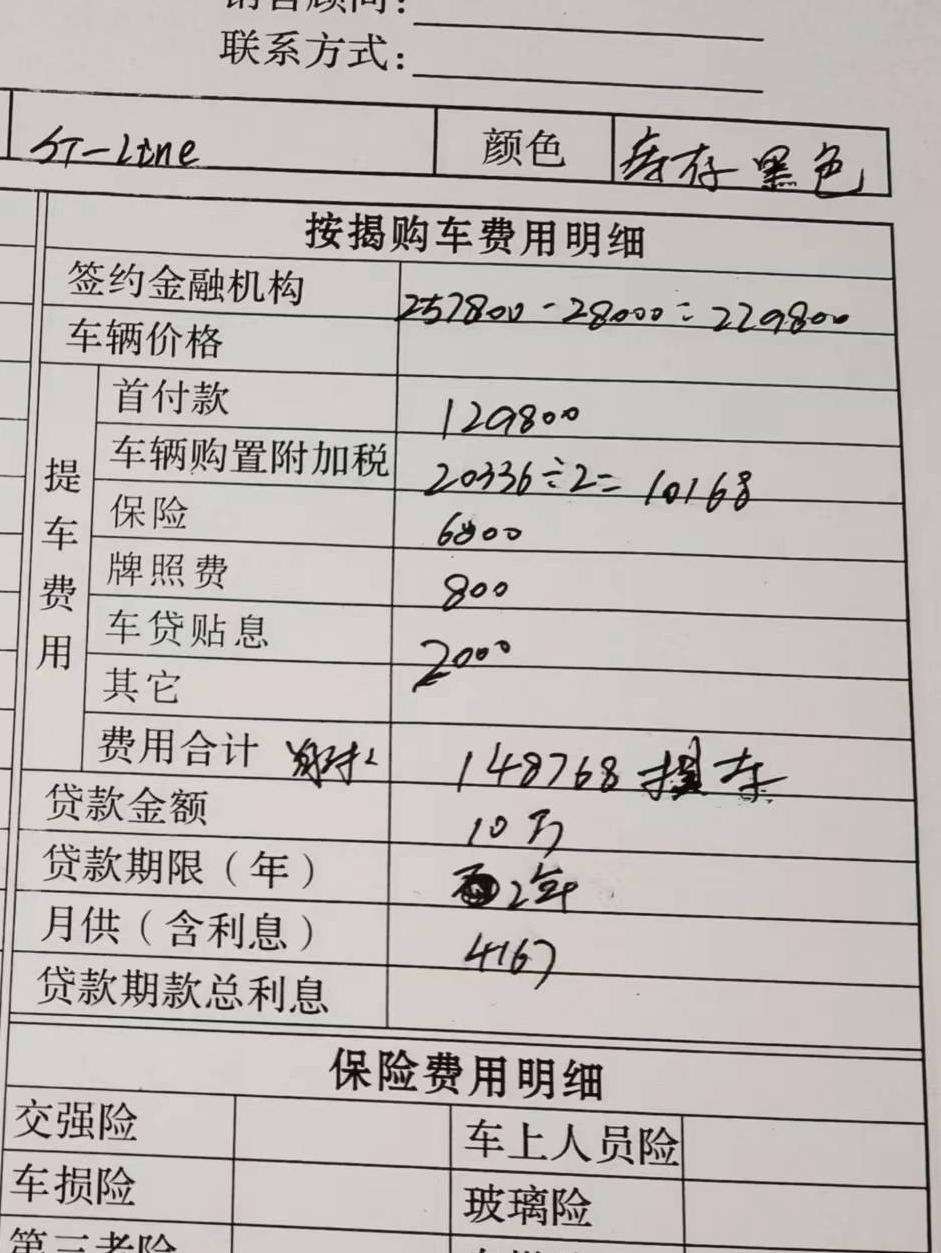 销售顾问:
联系方式:
ST-Line 颜色 库存黑色
按揭购车费用明细
签约金融机构
257800-28000=229800
车辆价格
提车费用
首付款 129800
车辆购置附加税 20336÷2=10168
保险 6000
牌照费 800
车贷贴息 2000
其它
费用合计 148768提车
贷款金额 10万
贷款期限(年) 2年
月供(含利息) 4167
贷款期款总利息
保险费用明细
交强险 车上人员险
车损险 玻璃险
第三者险